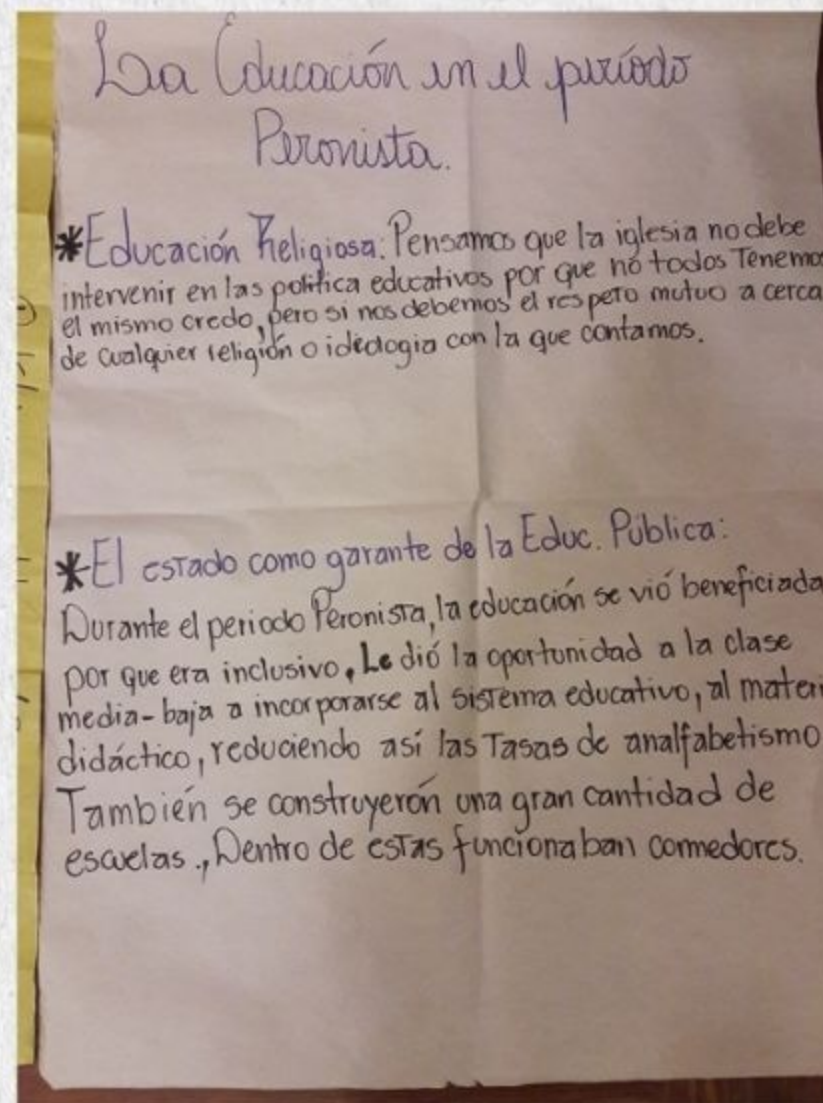 La Educación en el período
Peronista.
*Educación Religiosa: Pensamos que la iglesia no debe
intervenir en las politica educativos por que no todos Tenemos
el mismo credo, pero si nos debemos el respeto mutuo a cerca
de cualquier religión o ideologia con la que contamos.
*El estado como garante de la Educ. Pública:
Durante el periodo Peronista, la educación se vió beneficiada
por que era inclusivo. Le dió la oportunidad a la clase
media-baja a incorporarse al sistema educativo, al materi
didáctico, reduciendo así las Tasas de analfabetismo
También se construyerón una gran cantidad de
escuelas., Dentro de estas funcionaban comedores.